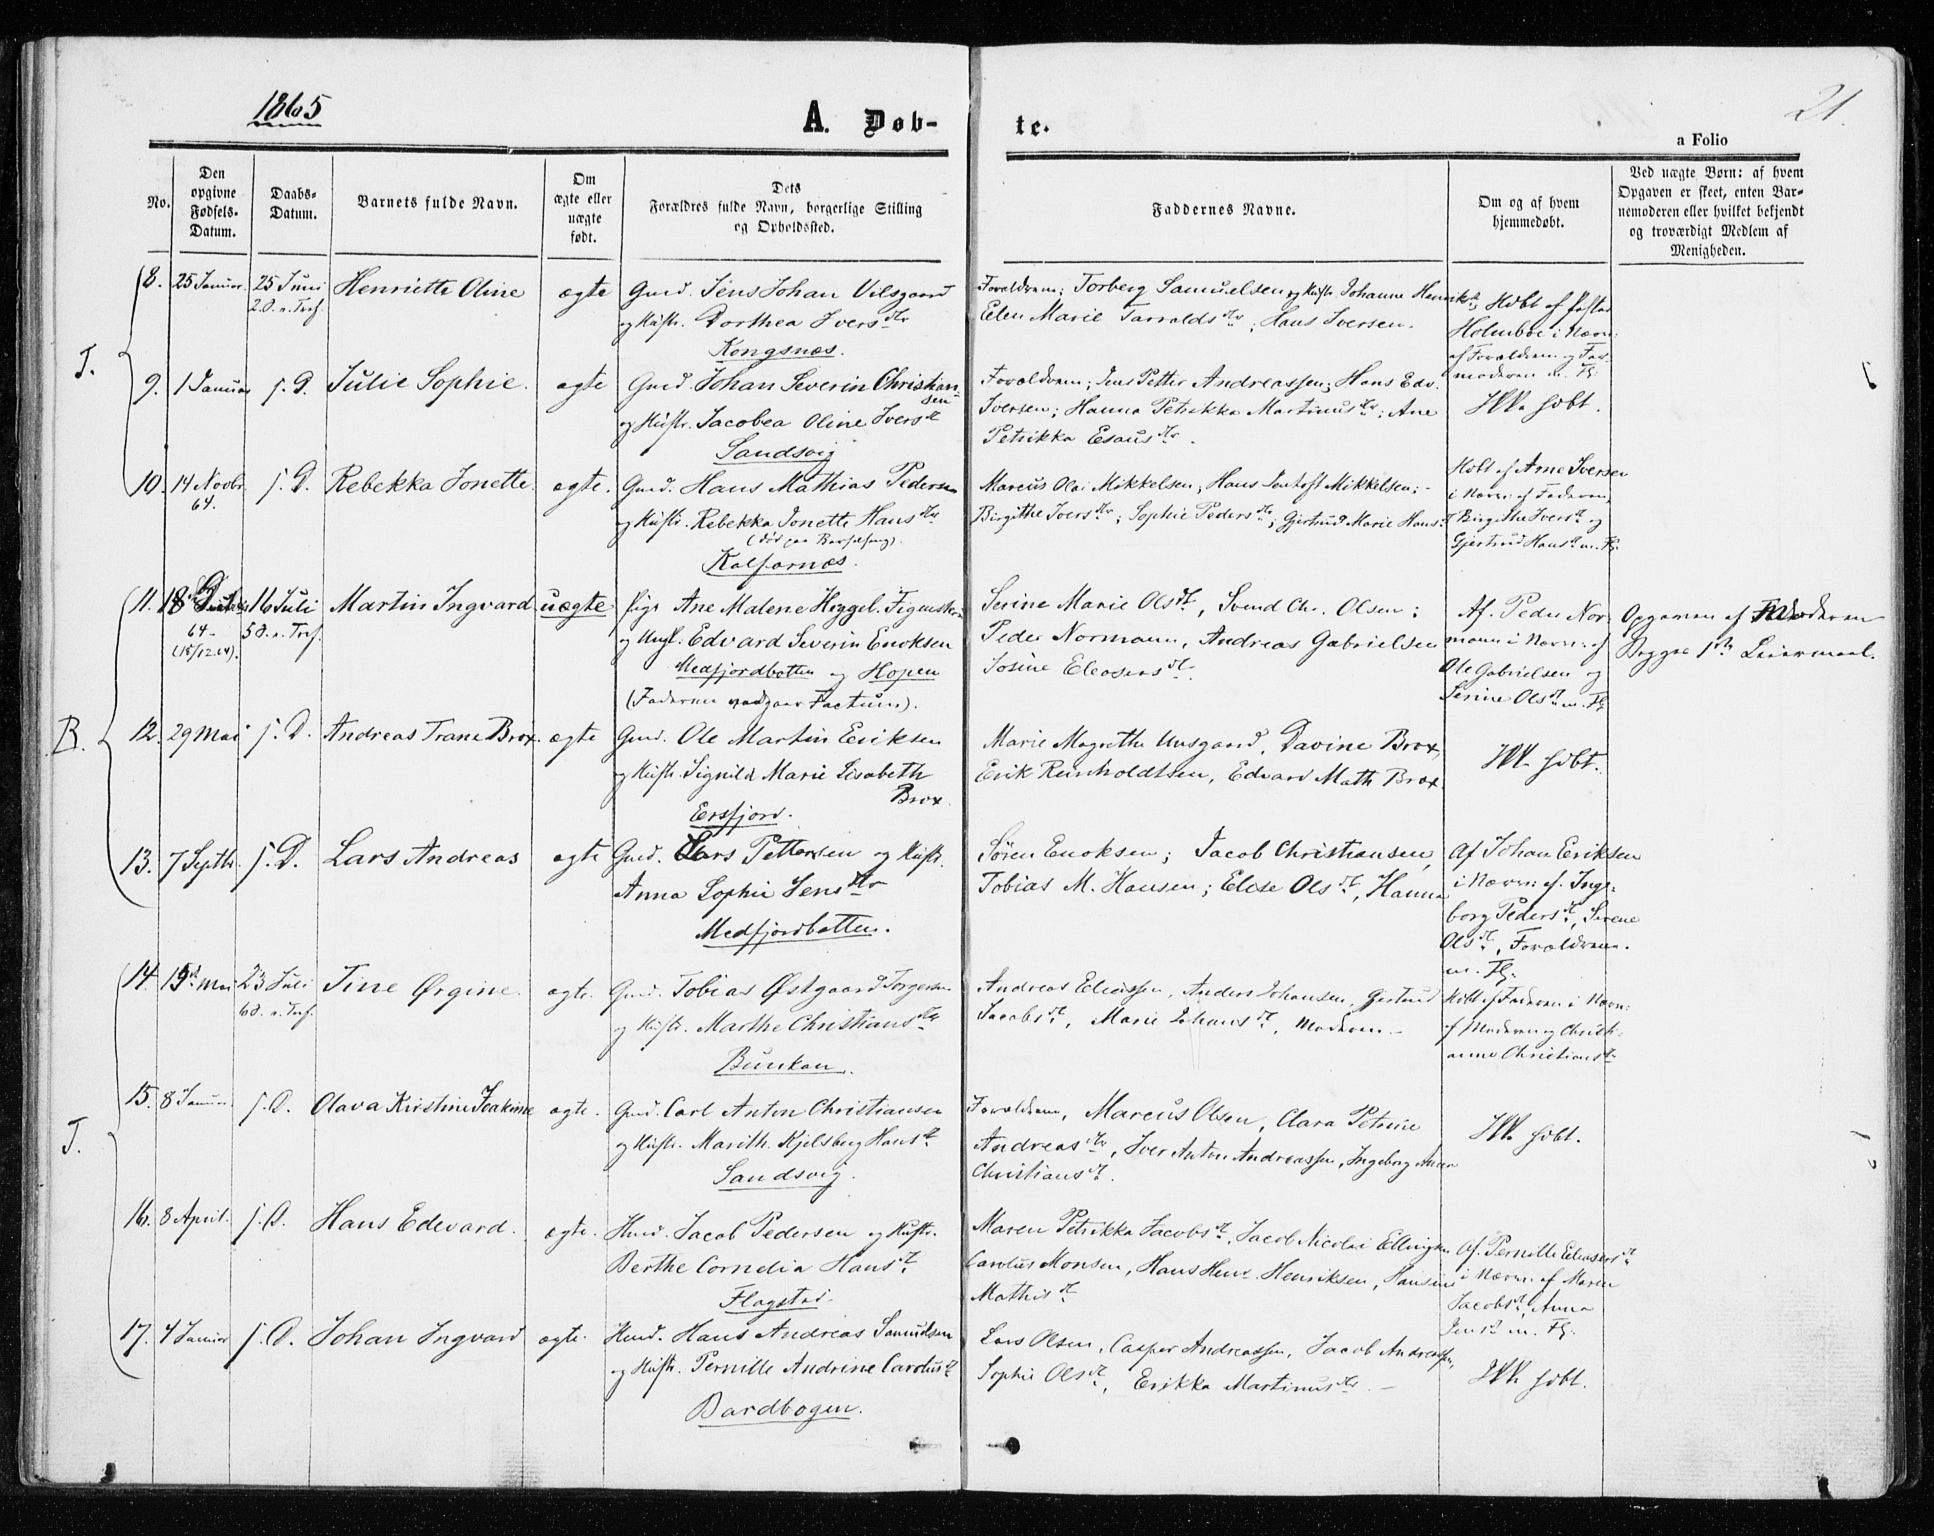 1865
A. Døb-
te.
21.
a Folio
No.
Den
opgivne
Fødsels-
Datum.
Daabs-
Datum.
Barnets fulde Navn.
Om
ægte eller
uægte
født.
Dets
Forældres fulde Navn, borgerlige Stilling
og Opholdssted.
Faddernes Navne.
Om og af hvem
hjemmedøbt.
Ved uægte Børn: af hvem
Opgaven er skeet, enten Bar-
nemoderen eller hvilket bekjendt
og troværdigt Medlem af
Menigheden.
T.
8. 25 Januar. 25 Juni Henriette Oline ægte Gmd. Jens Johan Vilsgaard
2 S. e. Tref. og Hustr. Dorthea Ivers dtr
Kongsnæs.
Forældrene; Torberg Samuelsen og Hustr. Johanne Henriks dt;
Elen Marie Tarralds dtr; Hans Iversen.
Hdbt af Pastor
Holmboe i Nærv:
af Forældrene og Far-
moderen m. Fl:
9. 1 Januar s. D. Julie Sophie. ægte Gmd. Johan Severin Christian-
sen
og Hustr. Jacobea Oline Ivers dt
Sandsvig
Forældrene; Jens Petter Andreassen; Hans Edv.
Iversen; Hanna Petrikka Martinus dtr; Ane
Petrikka Esaus dtr.
Ikke hdbt.
10. 14 Novbr. s. D. Rebekka Jonette. ægte. Gmd. Hans Mathias Pedersen
64. og Hustr. Rebekka Jonette Hans dtr
(død paa Barselseng).
Kalfarnæs.
Marcus Olai Mikkelsen; Hans Mikkelsen; -
Birgithe Ivers dtr; Sophie Peders dtr; Gjertrud Marie Hans dt
Hdbt af Arne Iversen
i Nærv: af Faderen,
Birgithe Ivers dt og
Gjertrud Hans dt m. Fl.
B.
11. 18 16 Juli Martin Ingvard uægte Pige Ane Malene Heggel.
64- 5 S. e. Tref. og Ungk. Edvard Severin Enoksen
(18/12 64). Medfjordbotten og Hopen
(Faderen vedgaar Factum).
Serine Marie Ols dt, Svend Chr. Olsen;
Peder Normann, Andreas Gabrielsen
Josine Eleasers dt.
Af Peder Nor
mann i Nærv: af
Ole Gabrielsen og
Serine Ols dt m. Fl.
Opgaven af Moderen
Begges 1ste Leiermaal.
12. 29 Mai s. D. Andreas Trane Brox. ægte Gmd. Ole Martin Eriksen
og Hustr. Signild Marie Lisabeth
Brox.
Ersfjord.
Marie Magrethe Unsgaard, Davine Brox,
Erik Reinholdtsen, Edvard Math. Brox
Ikke hdbt.
13. 7 Septbr. s. D. Lars Andreas ægte Gmd. Lars Pettersen og Hustr.
Anna Sophie Jens dtr
Medfjordbotten.
Søren Enoksen; Jacob Christiansen,
Tobias M. Hansen; Elise Ols dt, Hanna
Af Johan Eriksen
i Nærv: af Inge-
borg Peders dt, Serene
Ols dt, Forældrene.
m. Fl.
T.
14. 15 Mai 23 Juli Tine Ørgine. ægte. Gmd. Tobias Østgaard Torgersen
6 S. e. Tref. og Hustr. Marthe Christians dtr
Bunkan.
Andreas Eliassen, Anders Johansen, Gjertrud
Jacobs dt, Marie Johans dt, Moderen -
Hdbt af Faderen i Nærv:
af Moderen og Christi-
anne Christians dt
15. 8 Januar. s. D. Olava Kirstine Joakime ægte. Gmd. Carl Anton Christiansen
og Hustr. Marith. Kjelsberg Hans dt
Sandsvig.
Forældrene, Marcus Olsen, Clara Petrine
Andreas dtr, Iver Anton Andreassen, Ingeborg Anna
Christians dt.
Ikke hdbt.
16. 8 April. s. D. Hans Edevard. ægte. Hmd. Jacob Pedersen og Hustr.
Berthe Cornelia Hans dt.
Flagstad.
Maren Petrikka Jacobs dt, Jacob Nicolai Ellingsen
Carolus Monsen, Hans Henr. Henriksen, Hansine
Mathis dt
Af Pernille Eleasers dt
i Nærv: af Maren
Jacobs dt, Anna
Jens dt m. Fl.
17. 4 Januar s. D. Johan Ingvard ægte. Hmd. Hans Andreas Samuelsen
og Hustr. Pernille Andrine Carolus dt
Bardbogen.
Lars Olsen, Casper Andreassen, Jacob Andreassen,
Sophie Ols dt, Erikka Martinus dtr. -
Ikke hdbt.